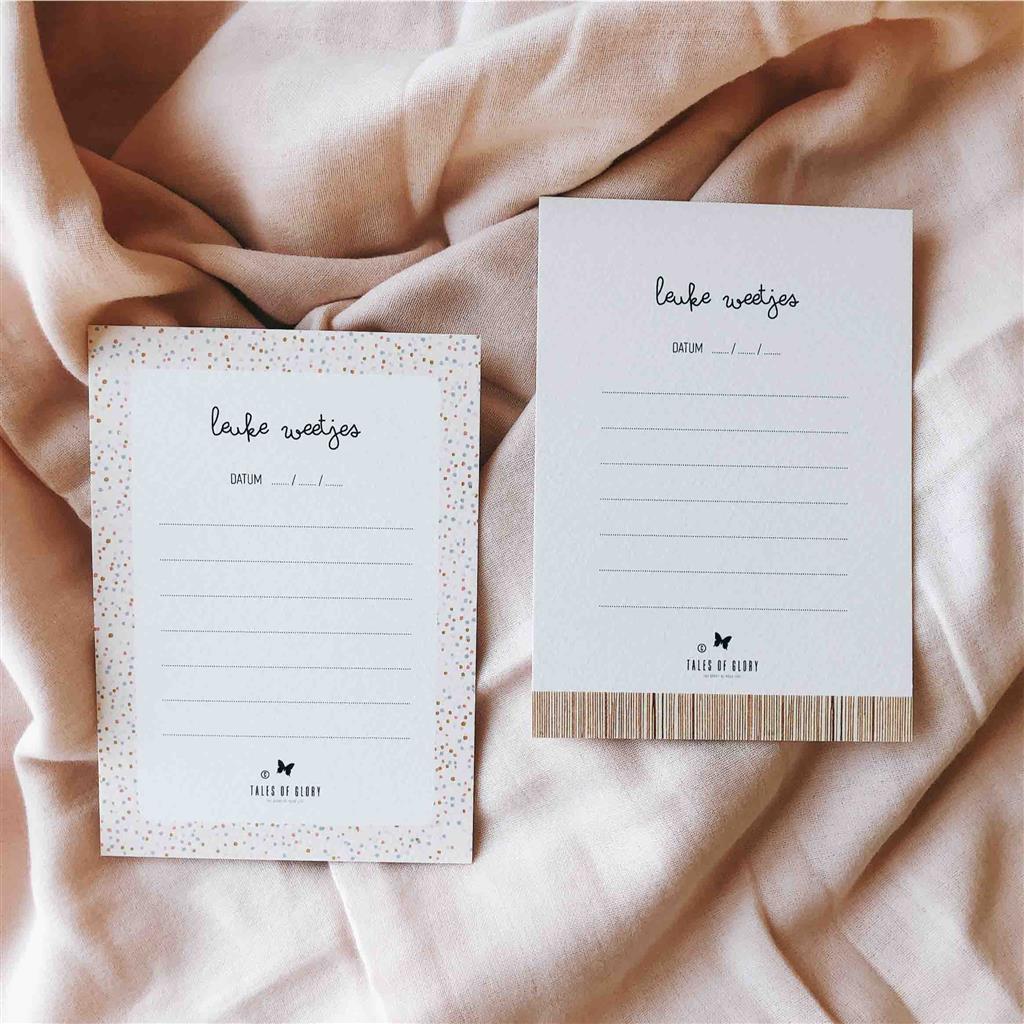 leuke weetjes
DATUM ....... / ....... / .......
©
TALES OF GLORY
leuke weetjes
DATUM ....... / ....... / .......
©
TALES OF GLORY